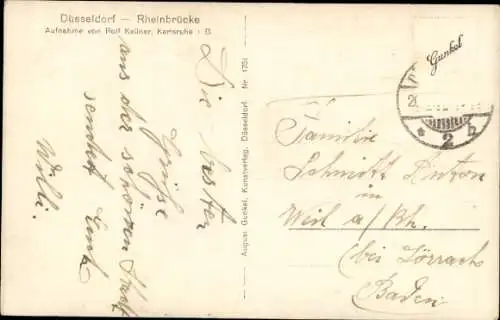 Düsseldorf — Rheinbrücke
Aufnahme von Rolf Kellner, Karlsruhe i. B.
Die besten
Grüße
aus der schönen Stadt
sendet Euch
Willi.
August Gunkel, Kunstverlag, Düsseldorf. Nr. 1751
Gunkel
* 2 b
Familie
Schmidt Anton
in
Weil a/Rh.
(bei Lörrach
Baden